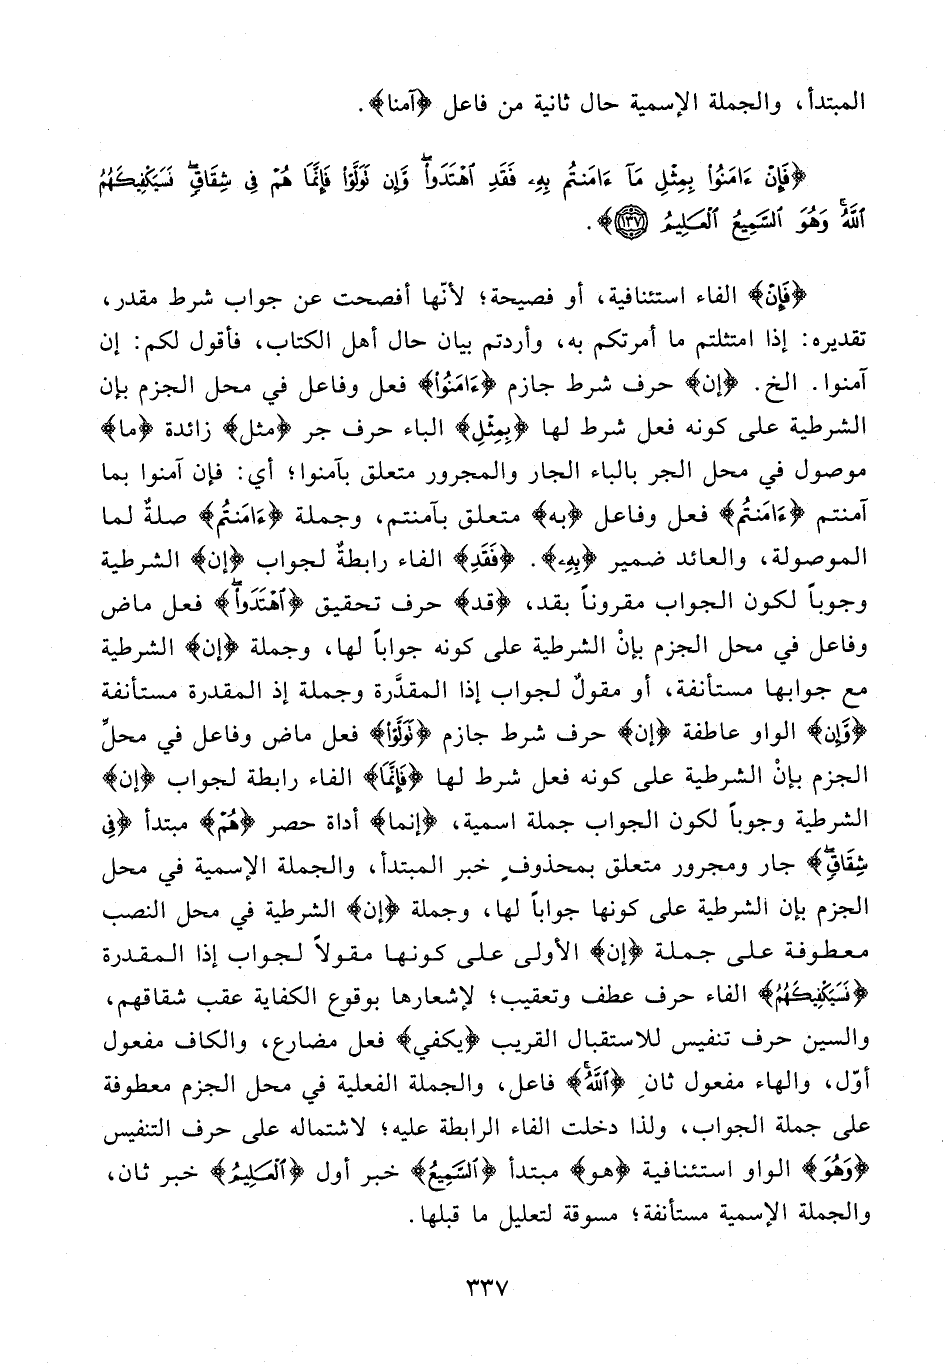 المبتدأ، والجملة الإسمية حال ثانية من فاعل ﴿آمنا﴾.
﴿فَإِنْ ءَامَنُوا۟ بِمِثْلِ مَآ ءَامَنتُم بِهِۦ فَقَدِ ٱهْتَدَوا۟ ۖ وَّإِن نَوَلَّوْا۟ فَإِنَّمَا هُمْ فِى شِقَاقٍ ۖ فَسَيَكْفِيكَهُمُ
ٱللَّهُ ۚ وَهُوَ ٱلسَّمِيعُ ٱلْعَلِيمُ ١٣٧﴾.
﴿فَإِنْ﴾ الفاء استئنافية، أو فصيحة؛ لأنّها أفصحت عن جواب شرط مقدر،
تقديره: إذا امتثلتم ما أمرتكم به، وأردتم بيان حال أهل الكتاب، فأقول لكم: إن
آمنوا. الخ. ﴿إن﴾ حرف شرط جازم ﴿ءَامَنُوا۟﴾ فعل وفاعل في محل الجزم بإن
الشرطية على كونه فعل شرط لها ﴿بِمِثْلِ﴾ الباء حرف جر ﴿مثل﴾ زائدة ﴿ما﴾
موصول في محل الجر بالباء الجار والمجرور متعلق بآمنوا؛ أي: فإن آمنوا بما
آمنتم ﴿ءَامَنتُم﴾ فعل وفاعل ﴿به﴾ متعلق بآمنتم، وجملة ﴿ءَامَنتُم﴾ صلةٌ لما
الموصولة، والعائد ضمير ﴿بِهِۦ﴾. ﴿فَقَدِ﴾ الفاء رابطةٌ لجواب ﴿إن﴾ الشرطية
وجوباً لكون الجواب مقروناً بقد، ﴿قد﴾ حرف تحقيق ﴿ٱهْتَدَوا۟ ۖ﴾ فعل ماض
وفاعل في محل الجزم بإنْ الشرطية على كونه جواباً لها، وجملة ﴿إن﴾ الشرطية
مع جوابها مستأنفة، أو مقولٌ لجواب إذا المقدَّرة وجملة إذ المقدرة مستأنفة
﴿وَّإِن﴾ الواو عاطفة ﴿إن﴾ حرف شرط جازم ﴿نَوَلَّوْا۟﴾ فعل ماض وفاعل في محلِّ
الجزم بإنْ الشرطية على كونه فعل شرط لها ﴿فَإِنَّمَا﴾ الفاء رابطة لجواب ﴿إن﴾
الشرطية وجوباً لكون الجواب جملة اسمية، ﴿إنما﴾ أداة حصر ﴿هُمْ﴾ مبتدأ ﴿فِى
شِقَاقٍ ۖ﴾ جار ومجرور متعلق بمحذوفٍ خبر المبتدأ، والجملة الإسمية في محل
الجزم بإن الشرطية على كونها جواباً لها، وجملة ﴿إن﴾ الشرطية في محل النصب
معطوفة على جملة ﴿إن﴾ الأولى على كونها مقولاً لجواب إذا المقدرة
﴿فَسَيَكْفِيكَهُمُ﴾ الفاء حرف عطف وتعقيب؛ لإشعارها بوقوع الكفاية عقب شقاقهم،
والسين حرف تنفيس للاستقبال القريب ﴿يكفي﴾ فعل مضارع، والكاف مفعول
أوّل، والهاء مفعول ثانٍ ﴿ٱللَّهُ ۚ﴾ فاعل، والجملة الفعلية في محل الجزم معطوفة
على جملة الجواب، ولذا دخلت الفاء الرابطة عليه؛ لاشتماله على حرف التنفيس
﴿وَهُوَ﴾ الواو استئنافية ﴿هو﴾ مبتدأ ﴿ٱلسَّمِيعُ﴾ خبر أول ﴿ٱلْعَلِيمُ﴾ خبر ثان،
والجملة الإسمية مستأنفة؛ مسوقة لتعليل ما قبلها.
٣٣٧